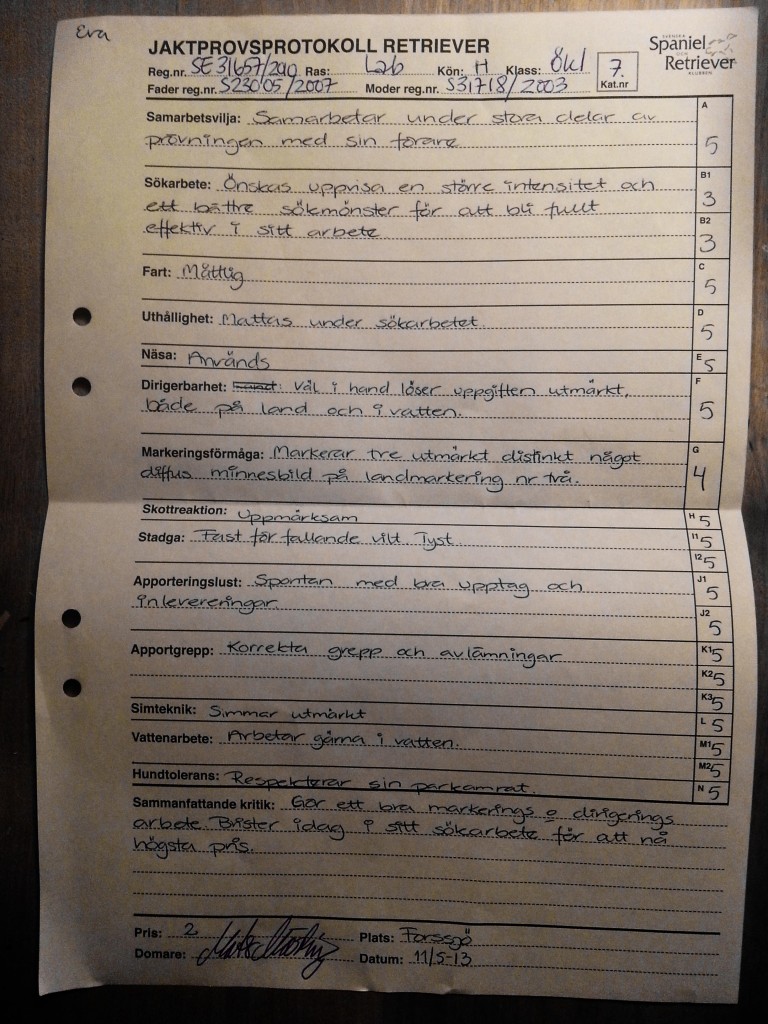 Eva
JAKTPROVSPROTOKOLL RETRIEVER
SVENSKA Spaniel OCH Retriever KLUBBEN
Reg.nr. SE31657/2010 Ras: Lab Kön: H Klass: Ökl 7.
Fader reg.nr. S23005/2007 Moder reg.nr. S31718/2003 Kat.nr
Samarbetsvilja: Samarbetar under stora delar av A
prövningen med sin förare 5
Sökarbete: Önskas uppvisa en större intensitet och B1 3
ett bättre sökmönster för att bli fullt B2
effektiv i sitt arbete 3
Fart: Måttlig C 5
Uthållighet: Mattas under sökarbetet. D 5
Näsa: Används E 5
Dirigerbarhet: Väl i hand löser uppgiften utmärkt, F
både på land och i vatten. 5
Markeringsförmåga: Markerar tre utmärkt distinkt något G
diffus minnesbild på landmarkering nr två. 4
Skottreaktion: Uppmärksam H 5
Stadga: Fast för fallande vilt. Tyst I1 5
I2 5
Apporteringslust: Spontan med bra upptag och J1 5
inlevereringar J2 5
Apportgrepp: Korrekta grepp och avlämningar K1 5
K2 5
K3 5
Simteknik: Simmar utmärkt L 5
Vattenarbete: Arbetar gärna i vatten. M1 5
M2 5
Hundtolerans: Respekterar sin parkamrat. N 5
Sammanfattande kritik: Gör ett bra markerings o dirigerings
arbete. Brister idag i sitt sökarbete för att nå
högsta pris.
Pris: 2 Plats: Forssjö
Domare: Datum: 11/5-13